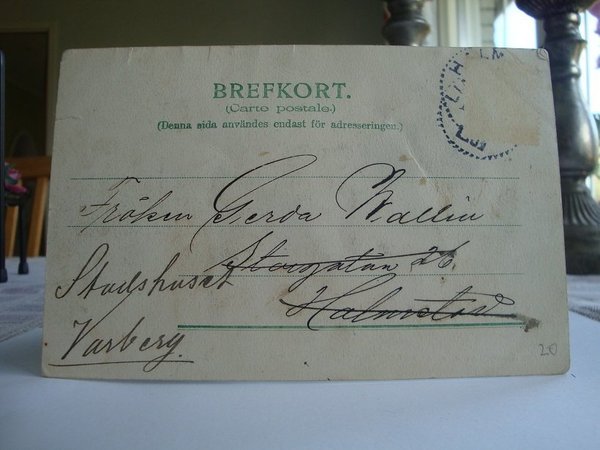 BREFKORT.
(Carte postale.)
(Denna sida användes endast för adresseringen.)
Fröken Gerda Wallin
Storgatan 26.
Stadshuset
Halmstad
Varberg.
20